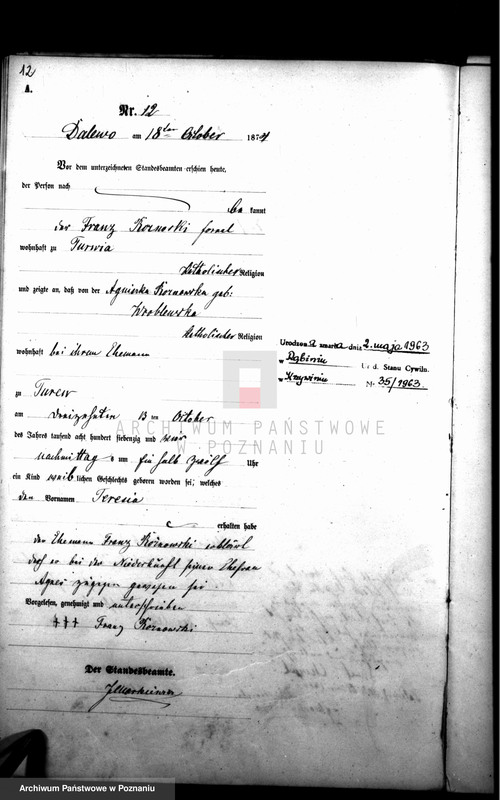 12
A.
Nr. 12
Dalewo am 18ten October 1874
Vor dem unterzeichneten Standesbeamten erschien heute,
der Person nach
be kannt
der Franz Koznowski
wohnhaft zu Turwia
katholischer Religion
und zeigte an, daß von der Agnieska Koznowska geb:
Wroblewska
katholischer Religion
wohnhaft bei ihrem Ehemann
zu Turew
am dreizehnten 13 ten October
des Jahres tausend acht hundert siebenzig und vier
nachmittag s um halb zwölf Uhr
ein Kind weib lichen Geschlechts geboren worden sei, welches
den Vornamen Teresia
erhalten habe
der Ehemann Franz Koznowski erklärt
daß er bei der Niederkunft seiner Ehefrau
Agnes zugegen gewesen sei
Vorgelesen, genehmigt und unterschrieben
+++ Franz Koznowski
Der Standesbeamte.
Urodzona zmarła dnia 2. maja 1963
w
Urząd. Stanu Cywiln.
w Krzywiniu Nr 35/1963.
ARCHIWUM PAŃSTWOWE
W POZNANIU
Archiwum Państwowe w Poznaniu